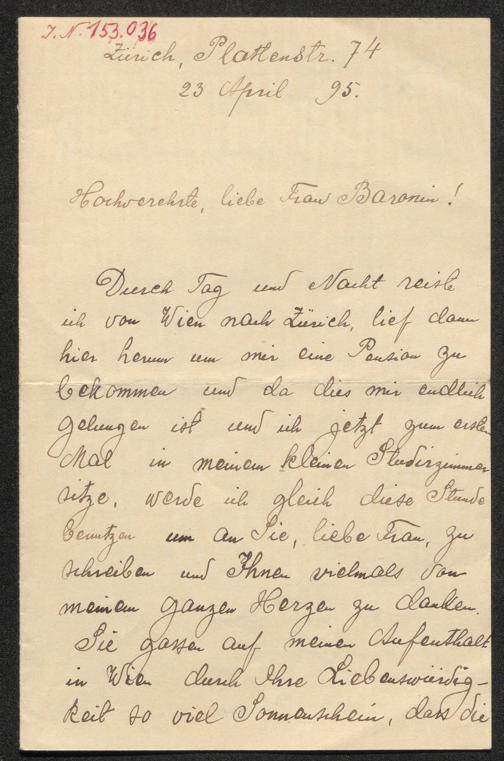 J. N. 153.036
Zürich, Plattenstr. 74
23 April 95.
Hochverehrte, liebe Frau Baronin!
Durch Tag und Nacht reiste
ich von Wien nach Zürich, lief dann
hier herum um mir eine Pension zu
bekommen und da dies mir endlich
gelungen ist und ich jetzt zum ersten
Mal in meinem kleinen Studirzimmer
sitze, werde ich gleich diese Stunde
benutzen um an Sie, liebe Frau, zu
schreiben und Ihnen vielmals von
meinem ganzen Herzen zu danken.
Sie gossen auf meinen Aufenthalt
in Wien durch Ihre Liebenswürdig-
keit so viel Sonnenschein, dass die